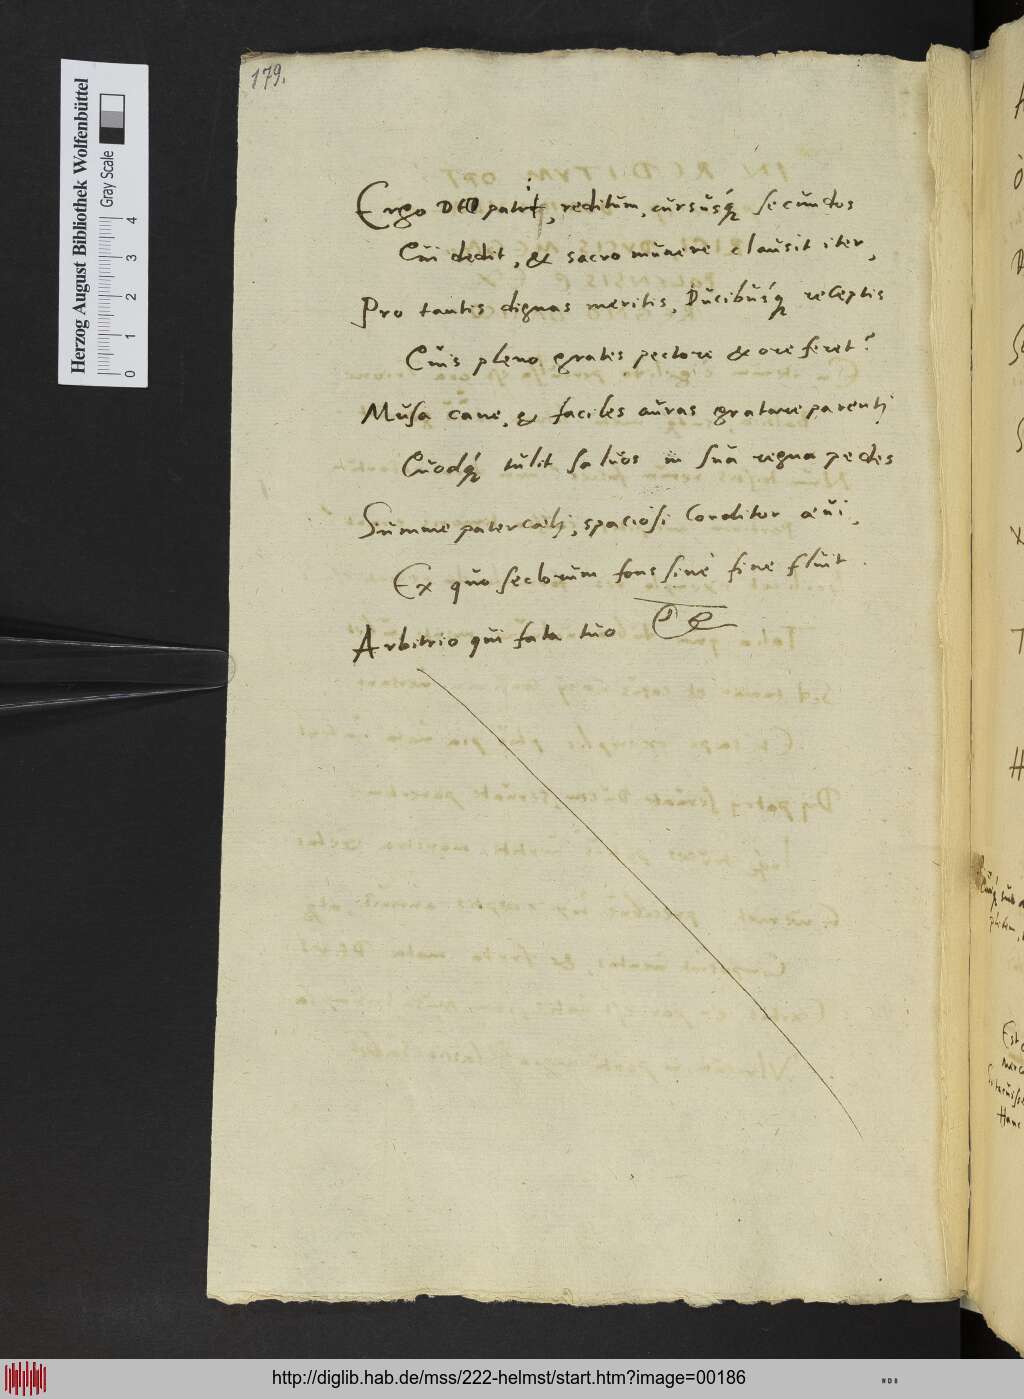 179.
Ergo DEO patri, reditum, cursusq́ꝫ secundos
Cui dedit, & sacro munere clausit iter,
Pro tantis dignas meritis, Ducibusq́ꝫ receptis
Cuis pleno grates pectore & ore feret?
Musa cane, & faciles auras gratare parentj
Cuodq́ꝫ tulit saluos in sua regna pedes
Summe pater caelj, spaciosi Conditor aeui,
Ex quo seclorum fons sine fine fluit.
Arbitrio qui fata tuo
Herzog August Bibliothek Wolfenbüttel
Gray Scale
0 1 2 3 4
http://diglib.hab.de/mss/222-helmst/start.htm?image=00186